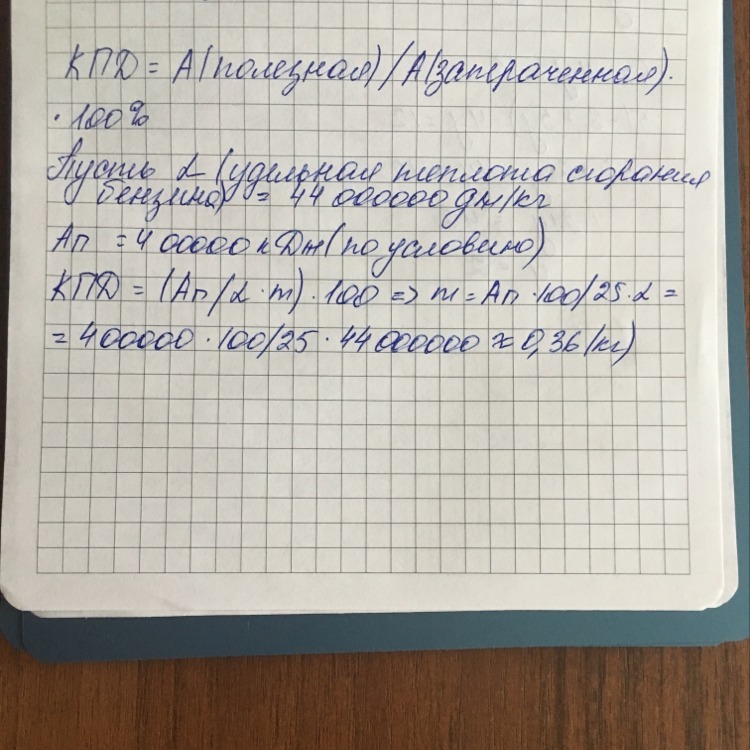 КПД = А(полезная)/А(затраченная)·
· 100%
Пусть L (удельная теплота сгорания
бензина) = 44 000000 Дж/кг
Ап = 400000 к Дж (по условию)
КПД = (Ап/L·m)·100 => m = Ап·100/25·L =
= 400000·100/25·44000000 ≈ 0,36 (кг)